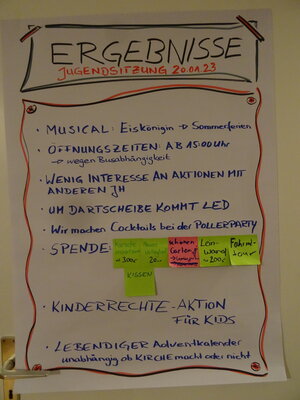 ERGEBNISSE
JUGENDSITZUNG 20.01.23
• MUSICAL: Eiskönigin → Sommerferien
• ÖFFNUNGSZEITEN: AB 15:00 Uhr
→ wegen Busabhängigkeit
• WENIG INTERESSE AN AKTIONEN MIT
ANDEREN JH
• UM DARTSCHEIBE KOMMT LED
• Wir machen Cocktails bei der POLLERPARTY
• SPENDE:
~300€
Lein-
wand
~200€
Fahrrad-
tour
KISSEN
• KINDERRECHTE-AKTION
FÜR KIDS
• LEBENDIGER Adventkalender
unabhängig ob KIRCHE macht oder nicht